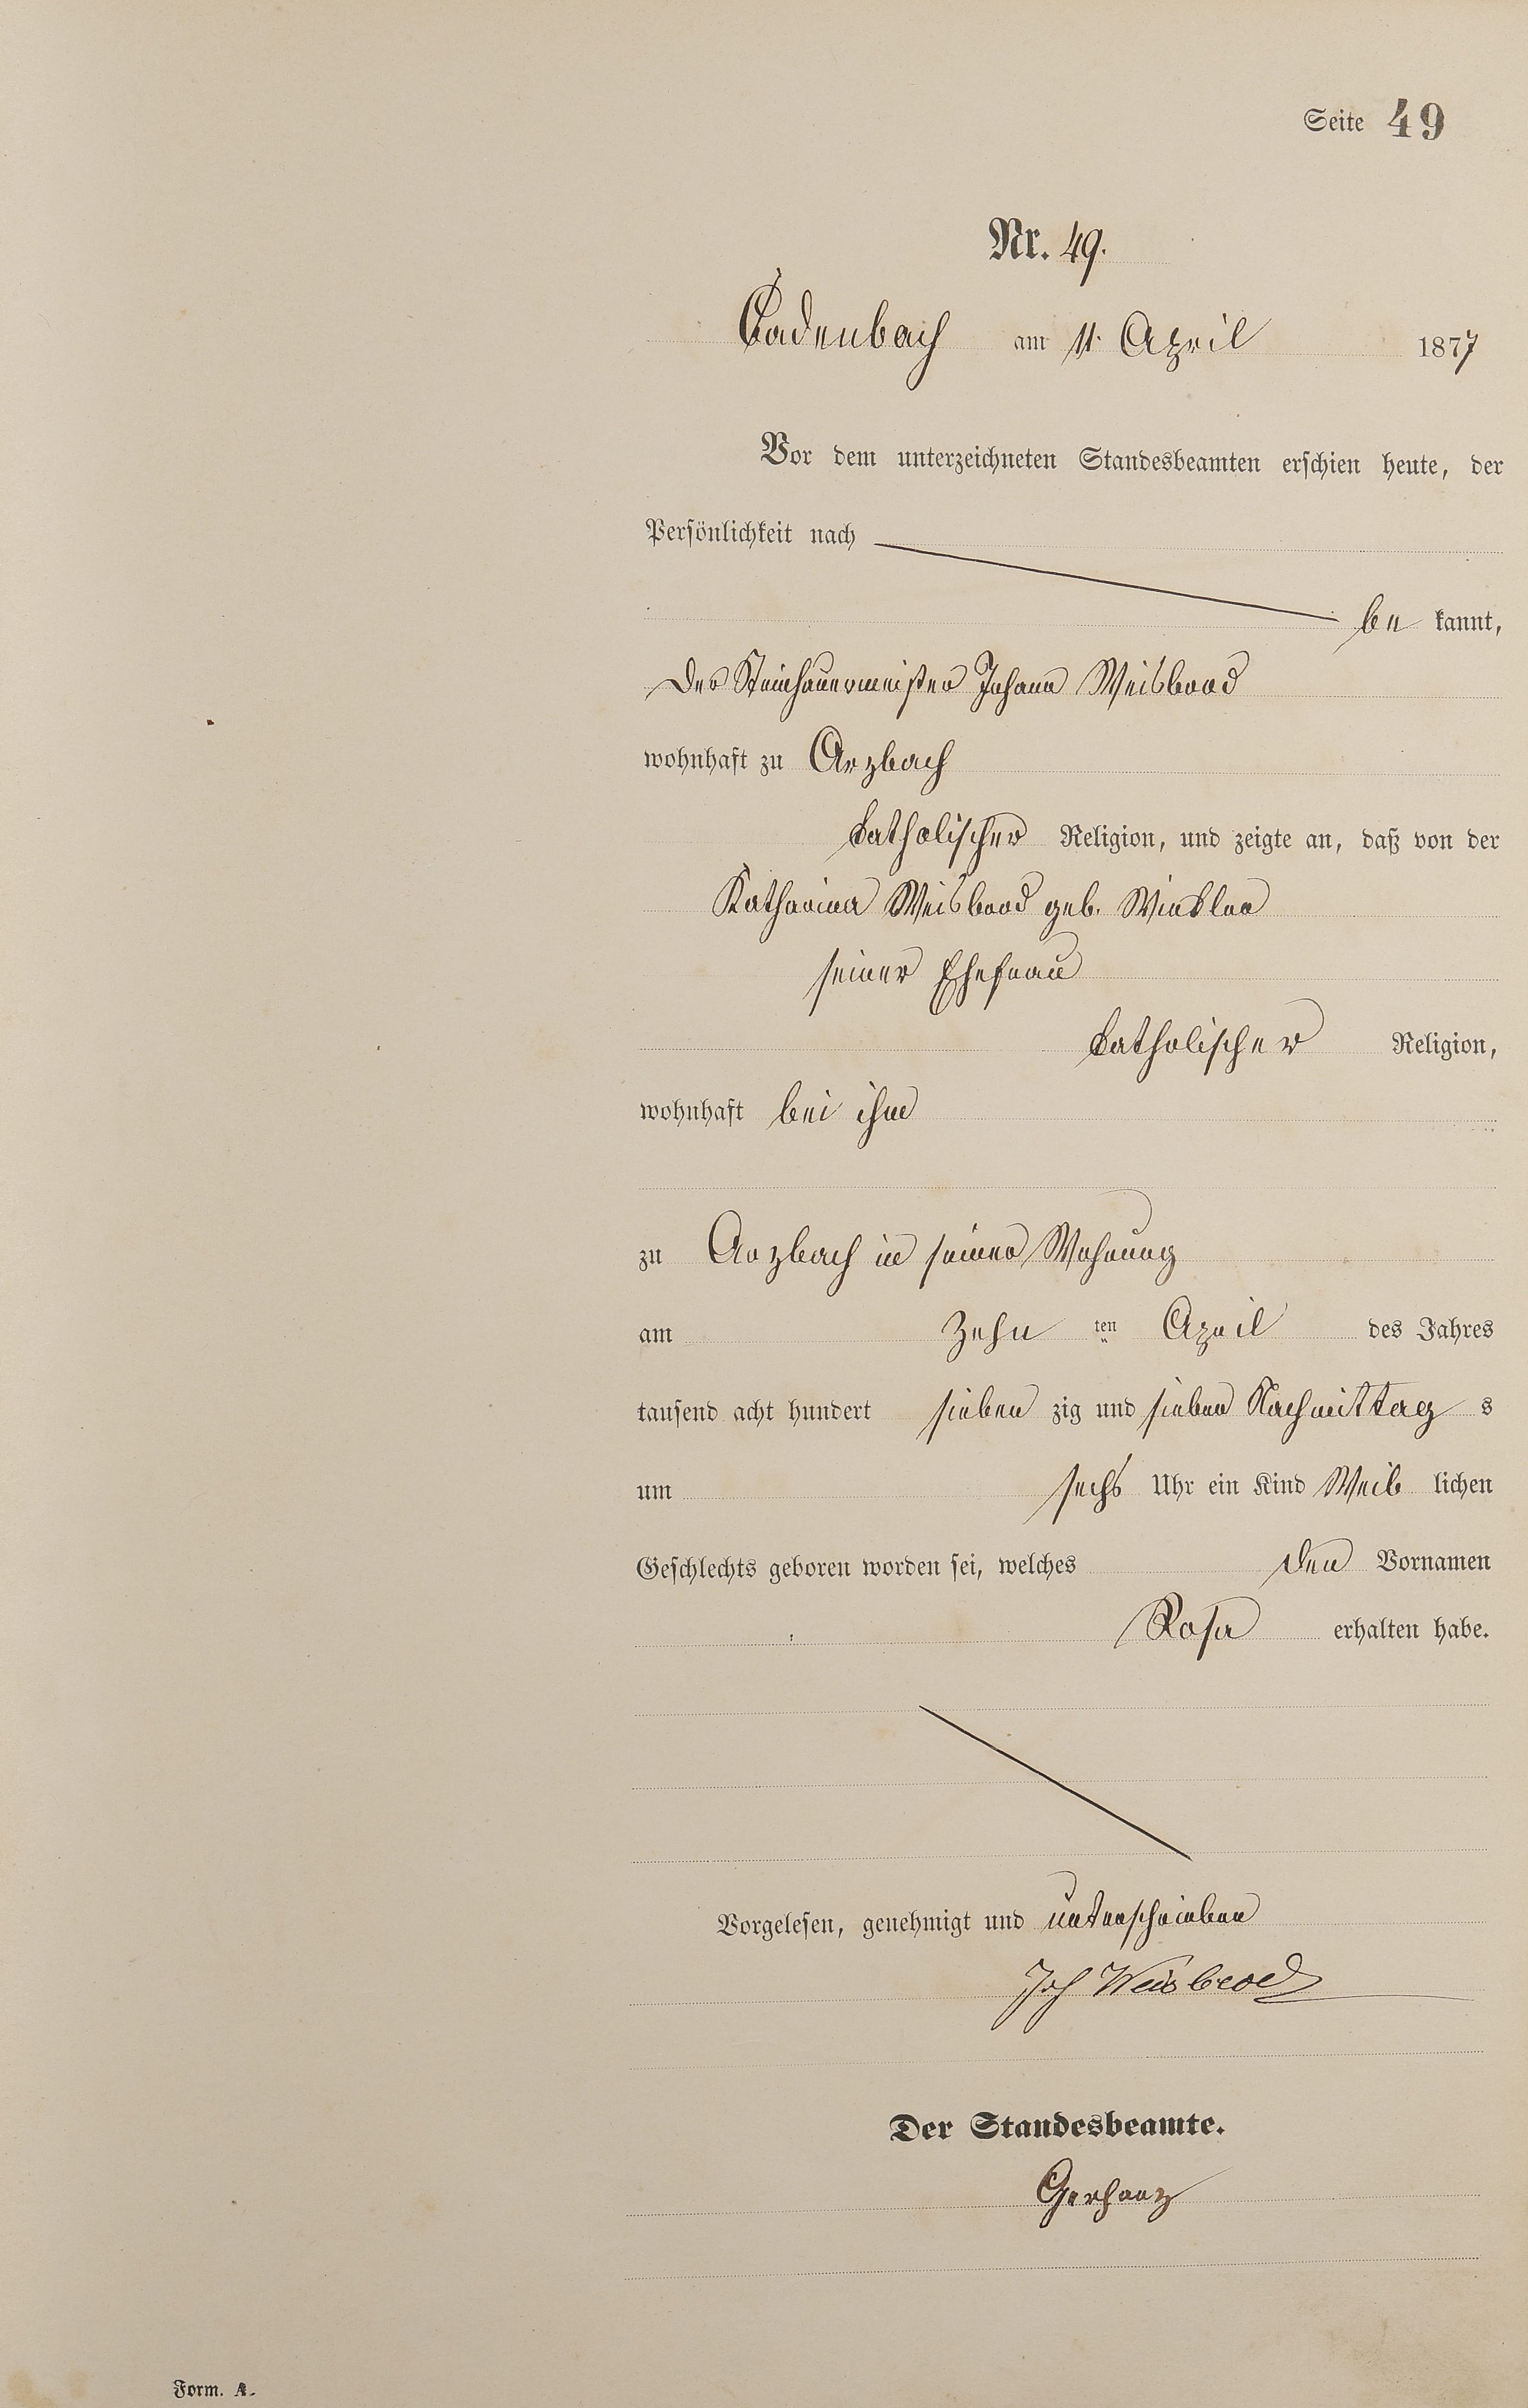 Seite 49
Nr. 49.
Cadenbach am 11. April 1877
Vor dem unterzeichneten Standesbeamten erschien heute, der
Persönlichkeit nach
be kannt,
der Steinhauermeister Johann Weisbrod
wohnhaft zu Arzbach
katholischer Religion, und zeigte an, daß von der
Katharina Weisbrod geb. Winkler
seiner Ehefrau
katholischer Religion,
wohnhaft bei ihm
zu Arzbach in seiner Wohnung
am Zehn ten April des Jahres
tausend acht hundert sieben zig und sieben Nachmittag s
um sechs Uhr ein Kind Weib lichen
Geschlechts geboren worden sei, welches den Vornamen
Rosa erhalten habe.
Vorgelesen, genehmigt und unterschrieben
Joh Weisbrod
Der Standesbeamte.
Gerharz
Form. A.